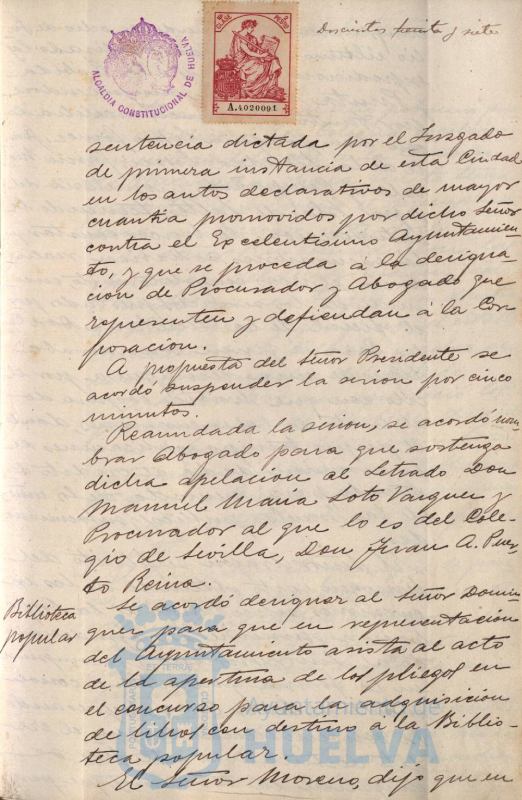 Doscientos treinta y siete
ALCALDIA CONSTITUCIONAL DE HUELVA
CLASE
A.4020091
sentencia dictada por el Juzgado
de primera instancia de esta Ciudad
en los autos declarativos de mayor
cuantia promovidos por dicho Señor
contra el Excelentisimo Ayuntamien-
to, y que se proceda á la designa-
cion de Procurador y Abogado que
representen y defiendan á la Cor-
poracion.
A propuesta del Señor Presidente se
acordó suspender la sesion por cinco
minutos.
Reanudada la sesion, se acordó nom-
brar Abogado para que sostenga
dicha apelacion al Letrado Don
Manuel Maria Soto Vazquez y
Procurador al que lo es del Cole-
gio de Sevilla, Don Juan A. Puer-
to Reina.
Biblioteca
popular
Se acordó designar al Señor Domin-
guez para que en representacion
del Ayuntamiento asista al acto
de la apertura de los pliegos en
el concurso para la adquisicion
de libros con destino á la Biblio-
teca popular.
El Señor Moreno, dijo que en
Ayuntamiento de
HUELVA